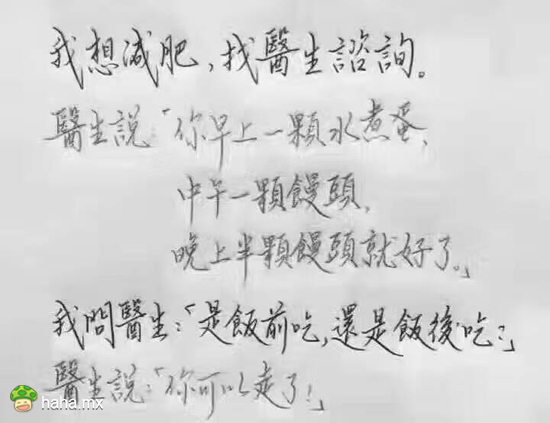 我想減肥，找醫生諮詢。
醫生說：「你早上一顆水煮蛋、
中午一顆饅頭、
晚上半顆饅頭就好了。」
我問醫生：「是飯前吃，還是飯後吃？」
醫生說：「你可以走了！」
haha.mx